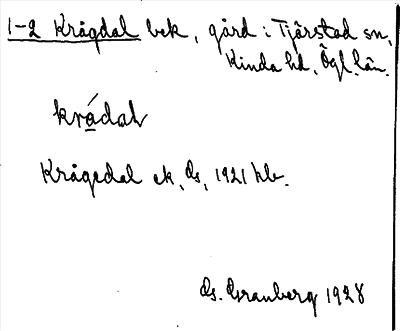 1-2 Krågdal bek, gård i Tjärstad sn,
Kinda hd, Ögl. län.
krádal
Krågedal ek, ds, 1921 hlr.
Gs. Granberg 1928